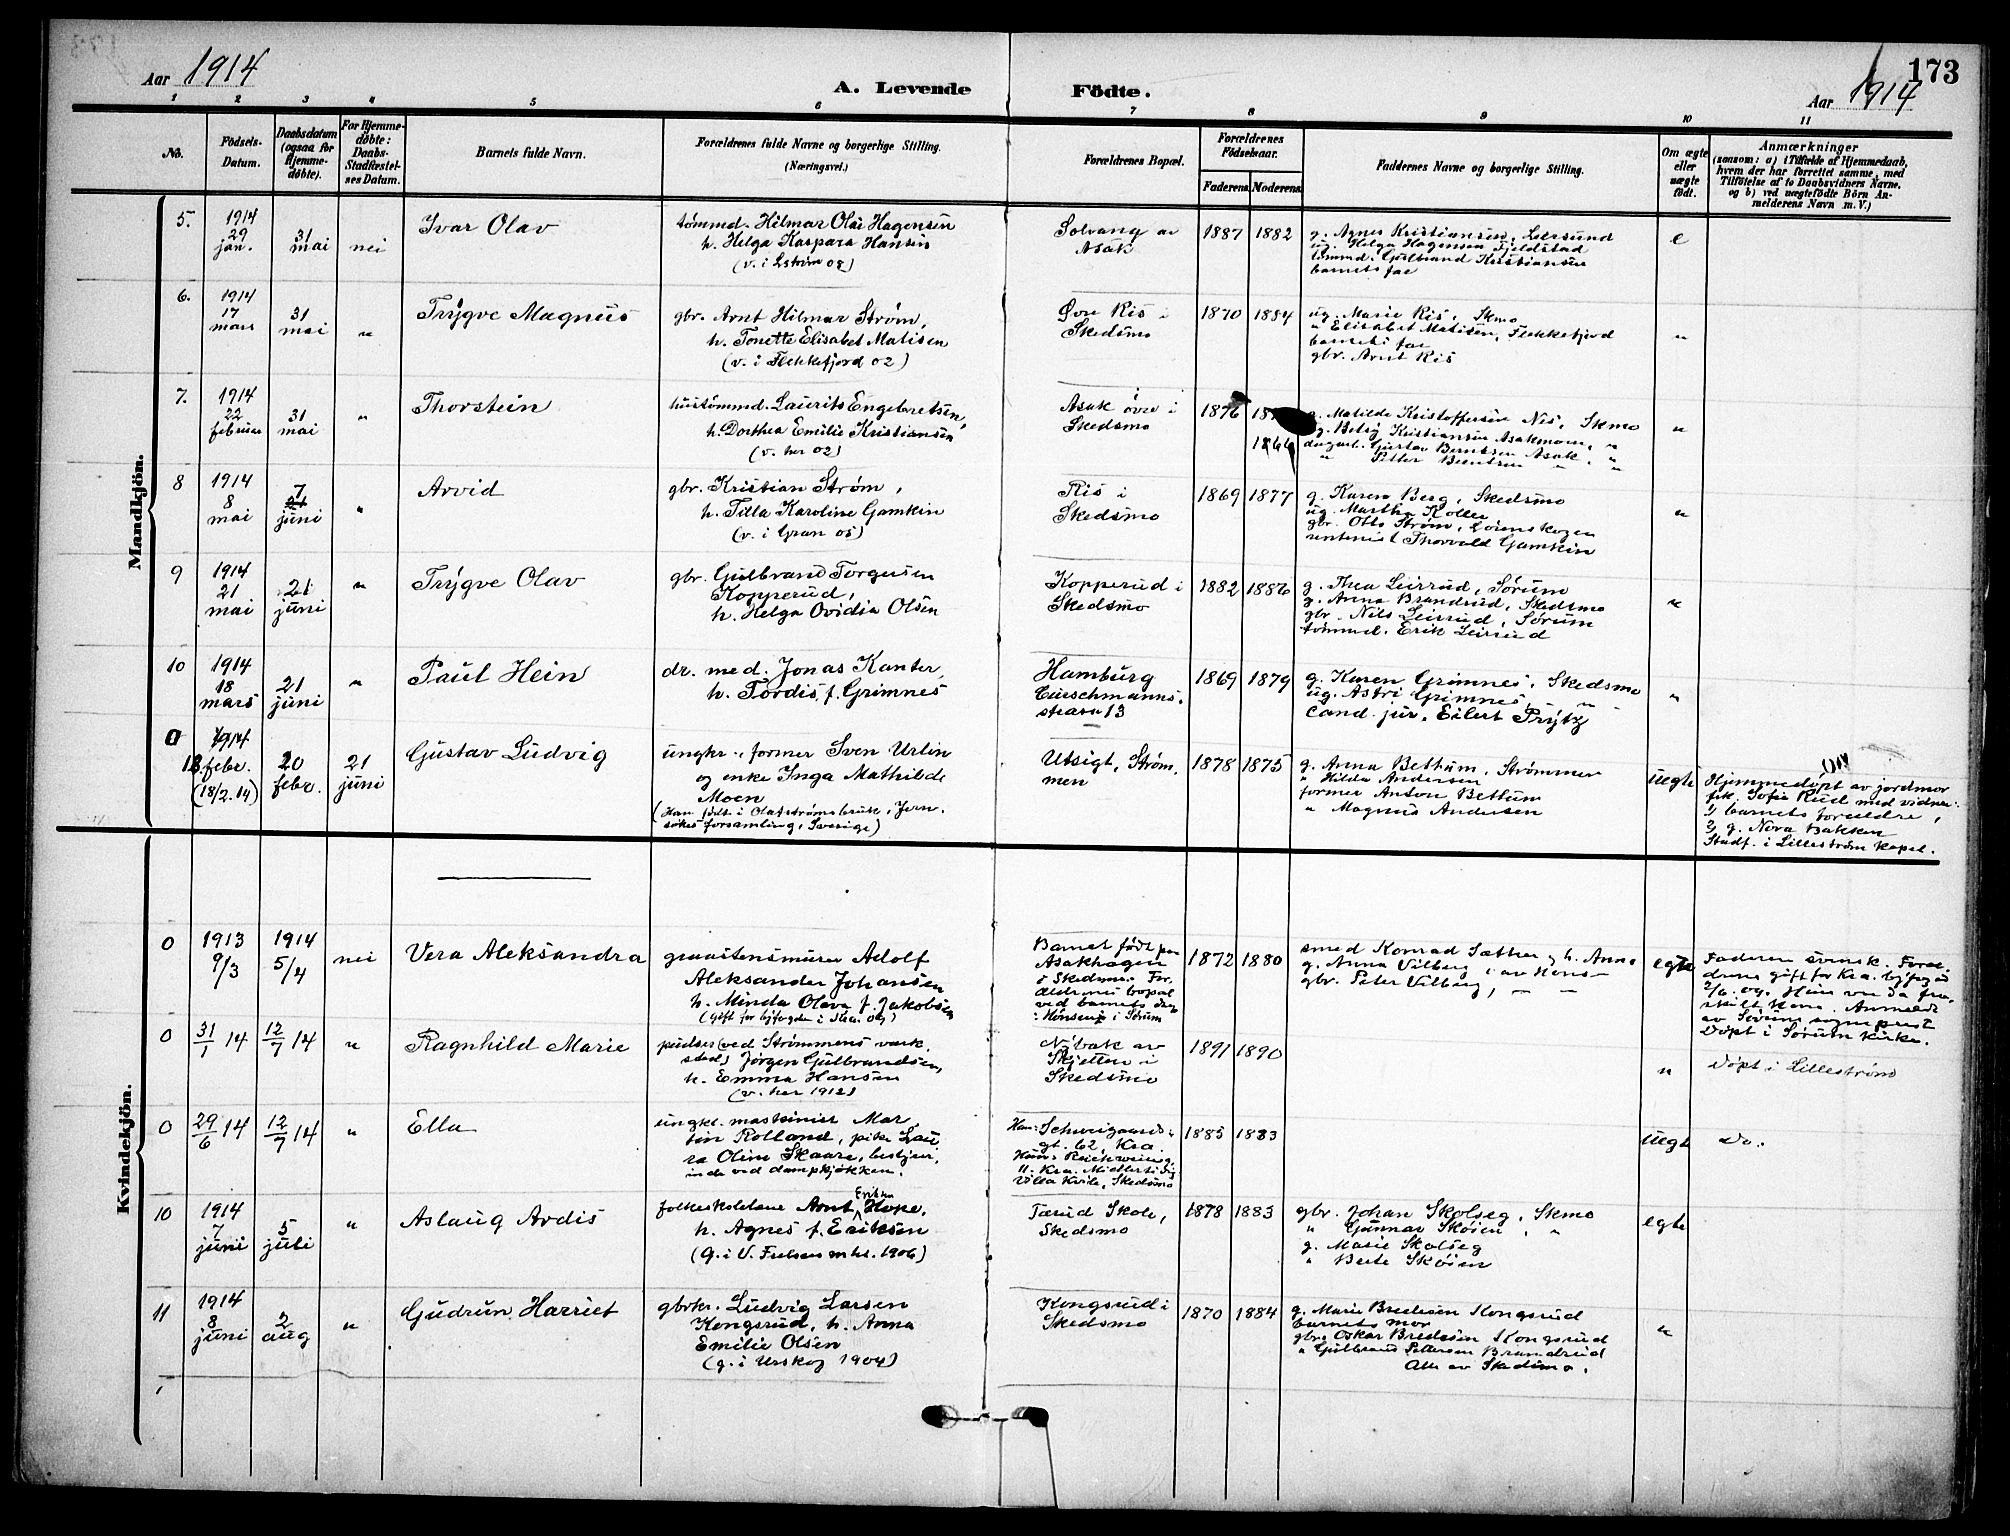 Aar 1914
A. Levende
Fødte.
173
Aar 1914
1 2 3 4 5 6 7 8 9 10 11
No.
Fødsels-
Datum.
Daabsdatum
(ogsaa for
Hjemme-
døbte).
For Hjemme-
døbte:
Daabs-
Stadfæstel-
ses Datum.
Barnets fulde Navn.
Forældrenes fulde Navne og borgerlige Stilling.
(Næringsvei.)
Forældrenes Bopæl.
Forældrenes
Fødselsaar.
Faderens.
Moderens.
Faddernes Navne og borgerlige Stilling.
Om ægte
eller
uægte
født.
Anmærkninger
(saasom: a) i Tilfælde af Hjemmedaab,
hvem der har forrettet samme, med
Tilføielse af to Daabsvidners Navne,
og b) ved uægtefødte Børn An-
melderens Navn m. V.)
Mandkjön.
5.
1914
29
jan.
31
mai
nei
Ivar Olav
tømmd. Hilmar Olai Hagensen
h. Helga Kaspara Hansen
(v. i Lstrøm 08)
Solvang av
Asak
1887
1882
g. Agnes Kristiansen, Leirsund
ug. Helga Hagensen Fjeldstad
tømmd. Gulbrand Kristiansen
barnets far
e
6.
1914
17
mars
31
mai
"
Trygve Magnus
gbr. Arnt Hilmar Strøm,
h. Tonette Elisabet Matisen
(v. i Flekkefjord 02)
Øvre Ris i
Skedsmo
1870
1884
ug. Marie Ris, Skmo
" Elisabet Matisen, Flekkefjord
barnets far
gbr. Arnt Ris
"
7.
1914
22
februar
31
mai
"
Thorstein
hustømmd. Laurits Engebretsen,
h. Dorthea Emilie Kristiansen
(v. her 02)
Asak øvre i
Skedsmo
1876
1866
g. Matilde Kristoffersen Nes, Skmo
g. Betsy Kristiansen Asakmoen, "
dagarb. Gustav Berntsen Asak, "
" Petter Berntsen " "
"
8
1914
8
mai
7
juni
"
Arvid
gbr. Kristian Strøm,
h. Tilla Karoline Gamkin
(v. i Gran 05)
Ris i
Skedsmo
1869
1877
g. Karen Berg, Skedsmo
ug. Martha Koller
gbr. Otto Strøm, Lørenskogen
rentenist Thorvald Gamkin
"
9
1914
21
mai
21
juni
"
Trygve Olav
gbr. Gulbrand Torgusen
Kopperud,
h. Helga Ovidia Olsen
Kopperud i
Skedsmo
1882
1886
g. Thea Leirrud, Sørum
g. Anna Brandrud, Skedsmo
gbr. Nils Leirrud, Sørum
tømmd. Erik Leirrud
"
10
1914
18
mars
21
juni
"
Paul Hein
dr. med. Jonas Kanter,
h. Tordis f. Grimnes
Hamburg
Curschmanns-
strasse 13
1869
1879
g. Karen Grimnes, Skedsmo
ug. Astri Grimnes, "
Cand. jur. Eilert Prytz
"
0
1914
13 febr.
(18/2. 14)
20
febr.
21
juni
Gustav Ludvig
ungkr., former Sven Urlin
og enke Inga Mathilde
Moen
(Han født i Olafstrømsbruk, Jern-
søkes forsamling, Sverige)
Utsigt, Strøm-
men
1878
1875
g. Anna Bethum, Strømmen
" Hilda Andersen
former Anton Bethum
" Magnus Andersen
uegte
Hjemmedøpt av jordmor
frk. Sofie Rud med vidner:
1) barnets forældre,
2) g. Nora Bakken
Stadf. i Lillestrøm kapel.
Kvindekjön.
0
1913
9/3
1914
5/4
nei
Vera Aleksandra
graastensmurer Adolf
Aleksander Johansen
h. Minda Olava f. Jakobsen
(Gift for byfogden i Kra. 09)
Barnet født paa
Asakhagen
i Skedsmo. For-
ældrenes bopæl
ved barnets daap
: Hønsen i Sørum
1872
1880
smed Konrad Sæther og h. Anna
g. Anna Vilberg, av Høns-
gbr. Peter Vilberg, — —
egte
Faderen svensk. Foræl-
drene gift for Kra. byfogd
2/6. 09. Hun var da fra-
skilt kone. Anmeldt
av Sørum sogneprest
Døpt i Sørum kirke.
0
31/1 14
12/7 14
"
Ragnhild Marie
pudser (ved Strømmens værk-
sted) Jørgen Gulbrandsen,
h. Emma Hansen
(v. her 1912)
Nybak av
Skjetten i
Skedsmo
1891
1890
"
Døpt i Lillestrøm
0
29/6 14
12/7 14
"
Ella
ungkr. maskinist Mar-
tin Rolland, pike Lau-
ra Oline Skaare, bestyrer-
inde ved dampkjøkken.
Han: Schweigaards-
gt. 62, Kra.
Hun: Reichweinsg.
11. Kra. Midlertidig
Villa Kvile, Skedsmo
1885
1883
uegte
Do.
10
1914
7
juni
5
juli
"
Aslaug Ardis
folkeskolelærer Arnt Erikson Hope,
h. Agnes f. Eriksen
(G. i V. Frelsers mh. 1906)
Tærud Skole,
Skedsmo
1878
1883
gbr. Johan Skolseg, Skmo
" Gunnar Skøien, "
g. Marie Skolseg
" Berte Skøien
egte
11
1914
8
juni
2
aug
"
Gudrun Harriet
gbrkr. Ludvig Larsen
Kongsrud, h. Anna
Emilie Olsen
(g. i Urskog 1904)
Kongsrud i
Skedsmo
1870
1884
g. Marie Bredesen Kongsrud
barnets mor
gbr. Oskar Bredesen Kongsrud
" Gulbrand Pettersen Brandrud
Alle av Skedsmo.
"